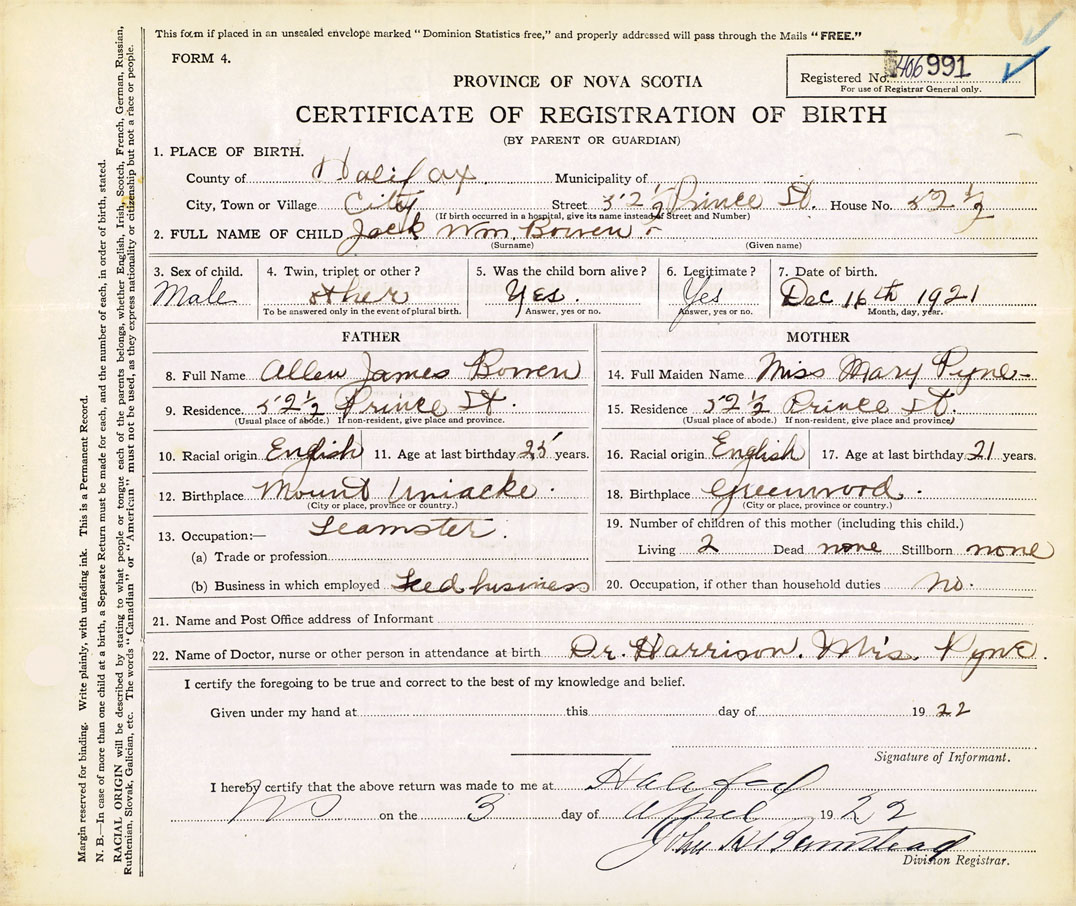 This form if placed in an unsealed envelope marked "Dominion Statistics free," and properly addressed will pass through the Mails "FREE."
FORM 4.
Registered No. 406991
For use of Registrar General only.
PROVINCE OF NOVA SCOTIA
CERTIFICATE OF REGISTRATION OF BIRTH
(BY PARENT OR GUARDIAN)
1. PLACE OF BIRTH.
County of Halifax Municipality of
City, Town or Village City Street 52 1/2 Prince St. House No. 52 1/2
(If birth occurred in a hospital, give its name instead of Street and Number)
2. FULL NAME OF CHILD Jack Wm. Bowen
(Surname) (Given name)
3. Sex of child. 4. Twin, triplet or other? 5. Was the child born alive? 6. Legitimate? 7. Date of birth.
Male other Yes. Yes Dec 16th 1921
To be answered only in the event of plural birth. Answer, yes or no. Answer, yes or no. Month, day, year.
FATHER MOTHER
8. Full Name Allen James Bowen 14. Full Maiden Name Miss Mary Pyne
9. Residence. 52 1/2 Prince St. 15. Residence 52 1/2 Prince St.
(Usual place of abode.) If non-resident, give place and province. (Usual place of abode.) If non-resident, give place and province)
10. Racial origin English 11. Age at last birthday 25 years. 16. Racial origin English 17. Age at last birthday 21 years.
12. Birthplace Mount Uniacke. 18. Birthplace Greenwood.
(City or place, province or country.) (City or place, province or country.)
13. Occupation:— Teamster. 19. Number of children of this mother (including this child.)
(a) Trade or profession Living 2 Dead none Stillborn none
(b) Business in which employed Feed business 20. Occupation, if other than household duties no.
21. Name and Post Office address of Informant
22. Name of Doctor, nurse or other person in attendance at birth Dr. Harrison. Mrs. Pyne.
I certify the foregoing to be true and correct to the best of my knowledge and belief.
Given under my hand at this day of 1922
Signature of Informant.
I hereby certify that the above return was made to me at Halifax
NS on the 3 day of April 1922
John H Barnstead
Division Registrar.
Margin reserved for binding. Write plainly, with unfading ink. This is a Permanent Record.
N. B.—In case of more than one child at a birth, a Separate Return must be made for each, and the number of each, in order of birth, stated.
RACIAL ORIGIN will be described by stating to what people or tongue each of the parents belongs, whether English, Irish, Scotch, French, German, Russian,
Ruthenian, Slovak, Galician, etc. The words "Canadian" or "American" must not be used, as they express nationality or citizenship but not a race or people.